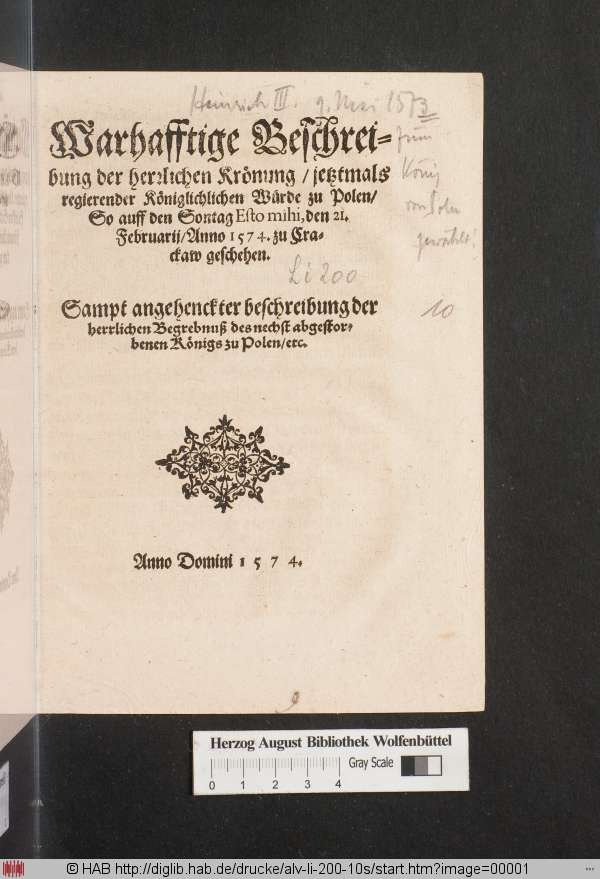 Heinrich III. 9. Mai 1573
zum
König
von Polen
gewählt!
Warhafftige Beschrei-
bung der herrlichen Krönung / jetztmals
regierender Königlichlichen Würde zu Polen/
So auff den Sontag Esto mihi, den 21.
Februarij/Anno 1574. zu Cra-
ckaw geschehen.
Li 200
10
Sampt angehenckter beschreibung der
herrlichen Begrebnuß des nechst abgestor-
benen Königs zu Polen/etc.
Anno Domini 1574.
Herzog August Bibliothek Wolfenbüttel
Gray Scale
0 1 2 3 4
© HAB http://diglib.hab.de/drucke/alv-li-200-10s/start.htm?image=00001